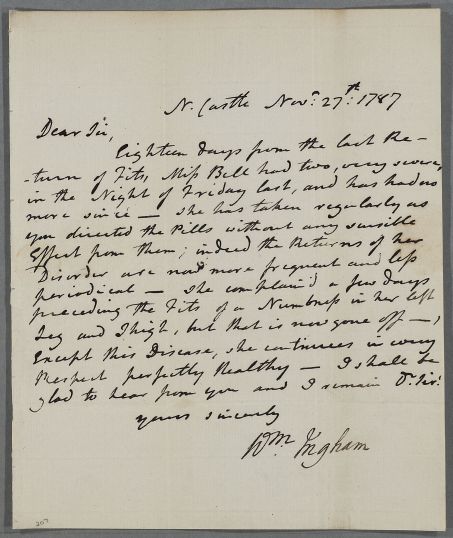 N. Castle Nov.r 27.th 1787
Dear Sir,
Eighteen days from the last Re-
-turn of Fits, Miss Bell had two, very severe,
in the Night of Friday last, and has had no
more since — She has taken regularly as
you directed the Pills without any sensible
Effect from them; indeed the Returns of her
Disorder are now more frequent and less
periodical — She complain'd a few days
preceding the Fits of a Numbness in her left
Leg and Thigh, but that is now gone off —,
Except this Disease, she continues in every
Respect perfectly Healthy — I shall be
glad to hear from you and I remain Dr. Sir
yours sincerely
Wm. Ingham
207